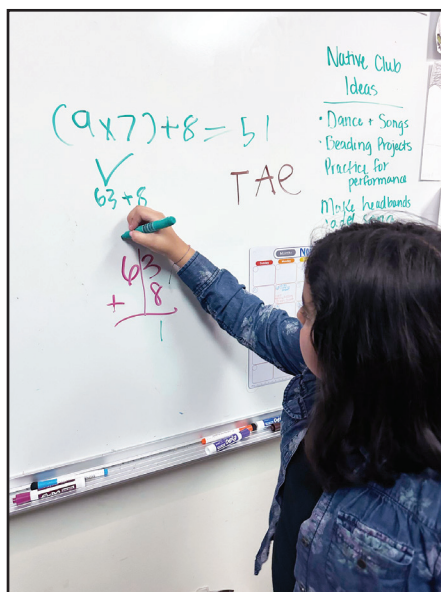 (9x7)+8=51
63+8
63
+ 8
1
TAE
Native Club
Ideas
• Dance + Songs
• Beading Projects
Practice for
performance
Make headbands
EXPO